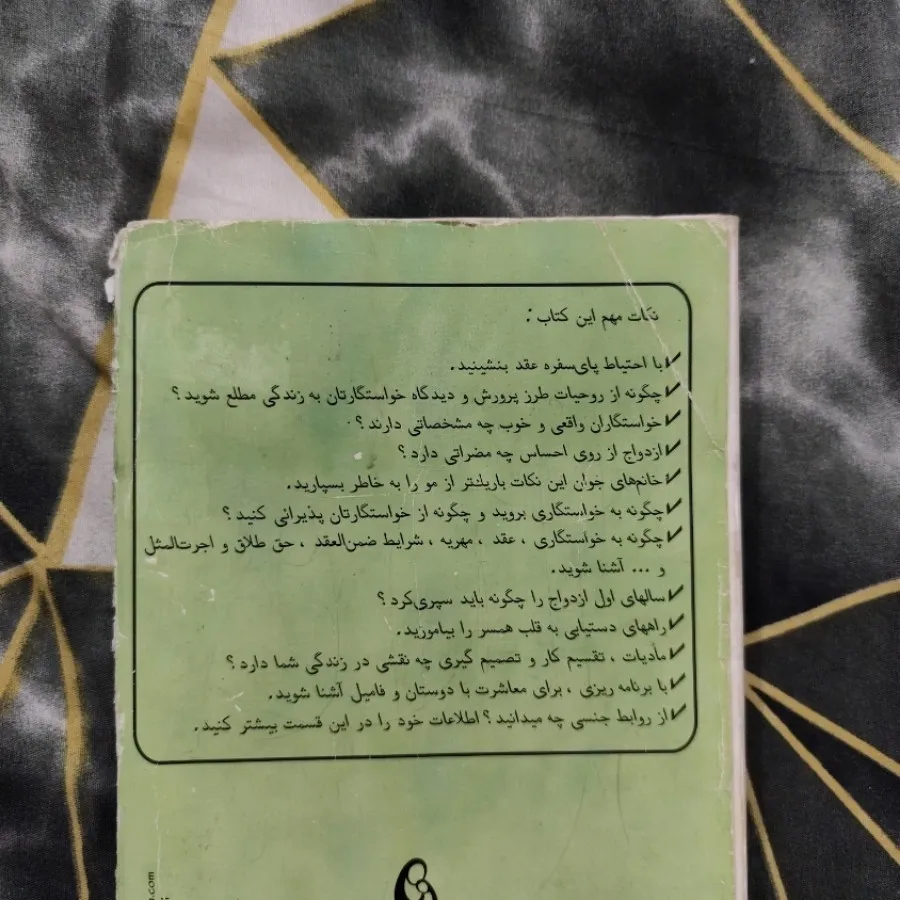 نکات مهم این کتاب :
✓با احتیاط پای‌سفره عقد بنشینید.
✓چگونه از روحیات طرز پرورش و دیدگاه خواستگارتان به زندگی مطلع شوید؟
✓خواستگاران واقعی و خوب چه مشخصاتی دارند؟
✓ازدواج از روی احساس چه مضراتی دارد؟
✓خانم‌های جوان این نکات باریکتر از مو را به خاطر بسپارید.
✓چگونه به خواستگاری بروید و چگونه از خواستگارتان پذیرانی کنید؟
✓چگونه به خواستگاری ، عقد ، مهریه ، شرایط ضمن‌العقد ، حق طلاق و اجرت‌المثل
و ... آشنا شوید.
✓سالهای اول ازدواج را چگونه باید سپری‌کرد؟
✓راههای دستیابی به قلب همسر را بیاموزید.
✓مادیات ، تقسیم کار و تصمیم گیری چه نقشی در زندگی شما دارد؟
✓با برنامه ریزی ، برای معاشرت با دوستان و فامیل آشنا شوید.
✓از روابط جنسی چه میدانید؟ اطلاعات خود را در این قسمت بیشتر کنید.
.com